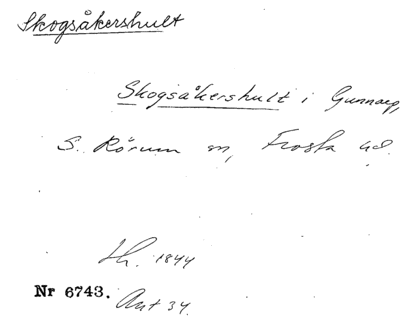 Skogsåkershult
Skogsåkershult i Gunnarp,
S. Rörum sn, Frosta hd.
Lh. 1844
Nr 6743. Ant 34.